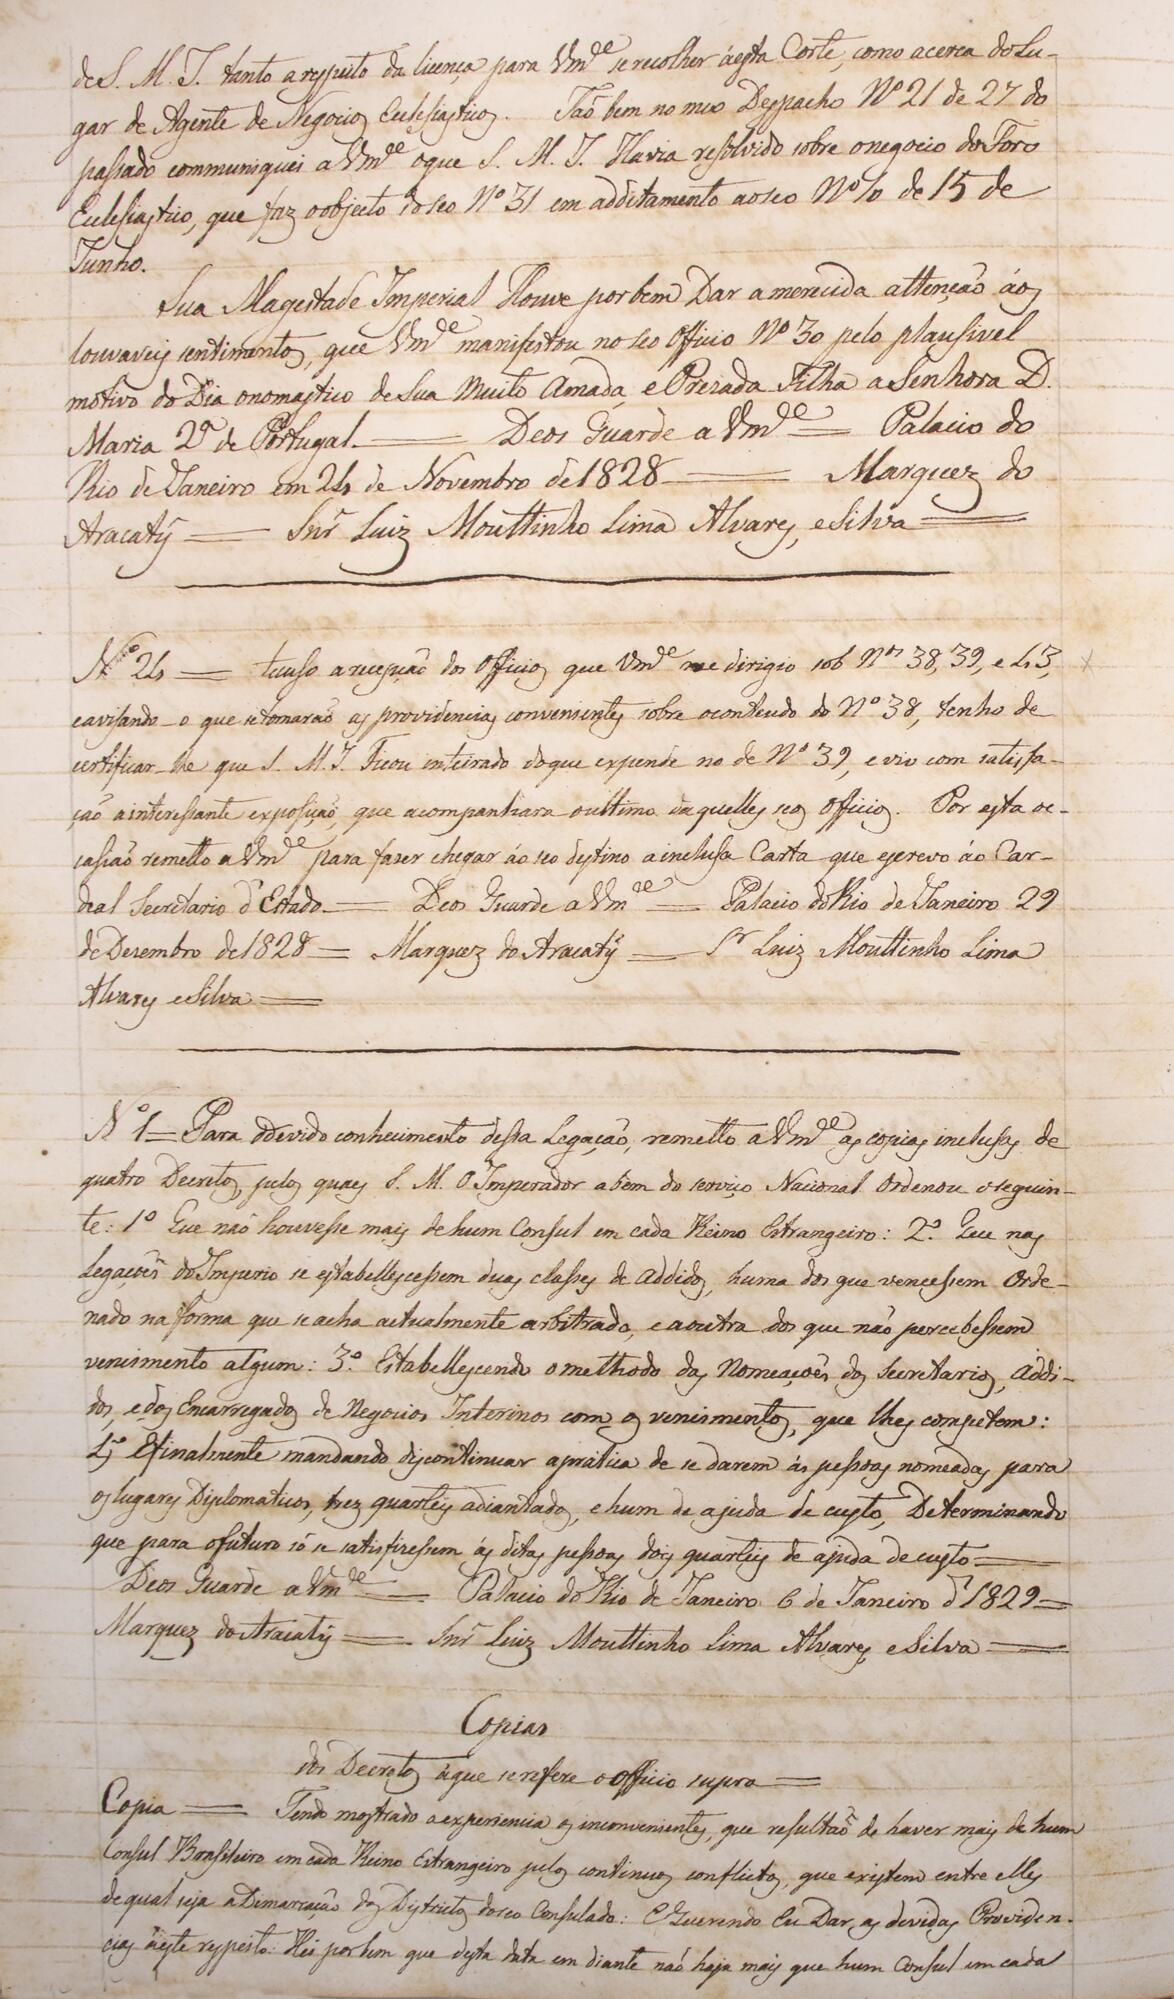 de S. M. I. tanto a respeito da licença para Vm.ce se recolher áesta Corte, como acerca do Lu-
gar de Agente de Negocios Eclesiasticos. Tão bem no meo Despacho Nº 21 de 27 do
passado communiquei a Vm.ce oque S. M. I. Havia resolvido sobre onegocio do Foro
Eclesiastico, que faz oobjecto doseo Nº 31 em additamento aoseo Nº 10 de 15 de
Junho.
Sua Magestade Imperial Houve porbem Dar amerecida attenção áos
louvaveis sentimentos, que Vm.ce manifestou noseo Officio Nº 30 pelo plausivel
motivo do Dia onomastico de Sua Muito Amada, e Prezada Filha a Senhora D.
Maria 2ª de Portugal. — Deos Guarde a Vm.ce = Palacio do
Rio de Janeiro em 24 de Novembro de 1828 = Marquez do
Aracatÿ = Snr. Luiz Mouttinho Lima Alvares, e Silva =
Nº 24 = Accuso arecepção dos Officios que Vm.ce me dirigio sob Nos 38, 39, e 43,
eavisando-o que setomarão as providencias convenientes sobre oconteudo do Nº 38, tenho de
certificar-lhe que S. M. I. Ficou inteirado doque expende no de Nº 39, eviu com satisfa-
ção ainteressante exposição, que acompanhara oultimo daquelles seos Officios. Por esta oc-
casião remetto a Vm.ce para fazer chegar áo seo destino ainclusa Carta que escrevo áo Car-
deal Secretario d'Estado = Deos Guarde a Vm.ce = Palacio do Rio de Janeiro 29
de Dezembro de 1828 = Marquez do Aracatÿ = Sr. Luiz Mouttinho Lima
Alvares eSilva =
Nº 1 = Para odevido conhecimento dessa Legação, remetto a Vm.ce as copias inclusas de
quatro Decretos, pelos quaes S. M. O Imperador abem do serviço Nacional Ordenou oseguin-
te: 1º Que não houvesse mais de hum Consul em cada Reino Estrangeiro: 2.º Que nas
Legações do Imperio se estabellescessem duas classes de Addidos, huma dos que vencessem Orde-
nado na forma que se acha actualmente arbitrado, e aoutra dos que não percebessem
vencimento algum: 3.º Estabellescendo omethodo das Nomeações dos Secretarios, Addi-
dos, e dos Encarregados de Negocios Interinos com os vencimentos, que lhes competem:
4º Efinalmente mandando discontinuar apratica de se darem ás pessoas nomeadas para
os lugares Diplomaticos, trez quarteis adiantados, e hum de ajuda de custo, Determinando
que para ofuturo só se satisfizessem ás ditas pessoas dois quarteis de ajuda de custo =
Deos Guarde a Vm.ce = Palacio do Rio de Janeiro 6 de Janeiro d'1829 =
Marquez do Aracatÿ = Snr. Luiz Mouttinho Lima Alvares eSilva =
Copias
dos Decretos áque serefere o Officio supra =
Copia = Tendo mostrado aexperiencia os inconvenientes, que resultão de haver mais de hum
Consul Brasileiro em cada Reino Estrangeiro pelos continuos conflictos, que existem entre elles
de qual seja a Dimarcação dos Districtos doseo Consulado: E Querendo Eu Dar as devidas Providen-
cias áeste respeito: Hei por bem que desta data em diante não haja mais que hum Consul em cada